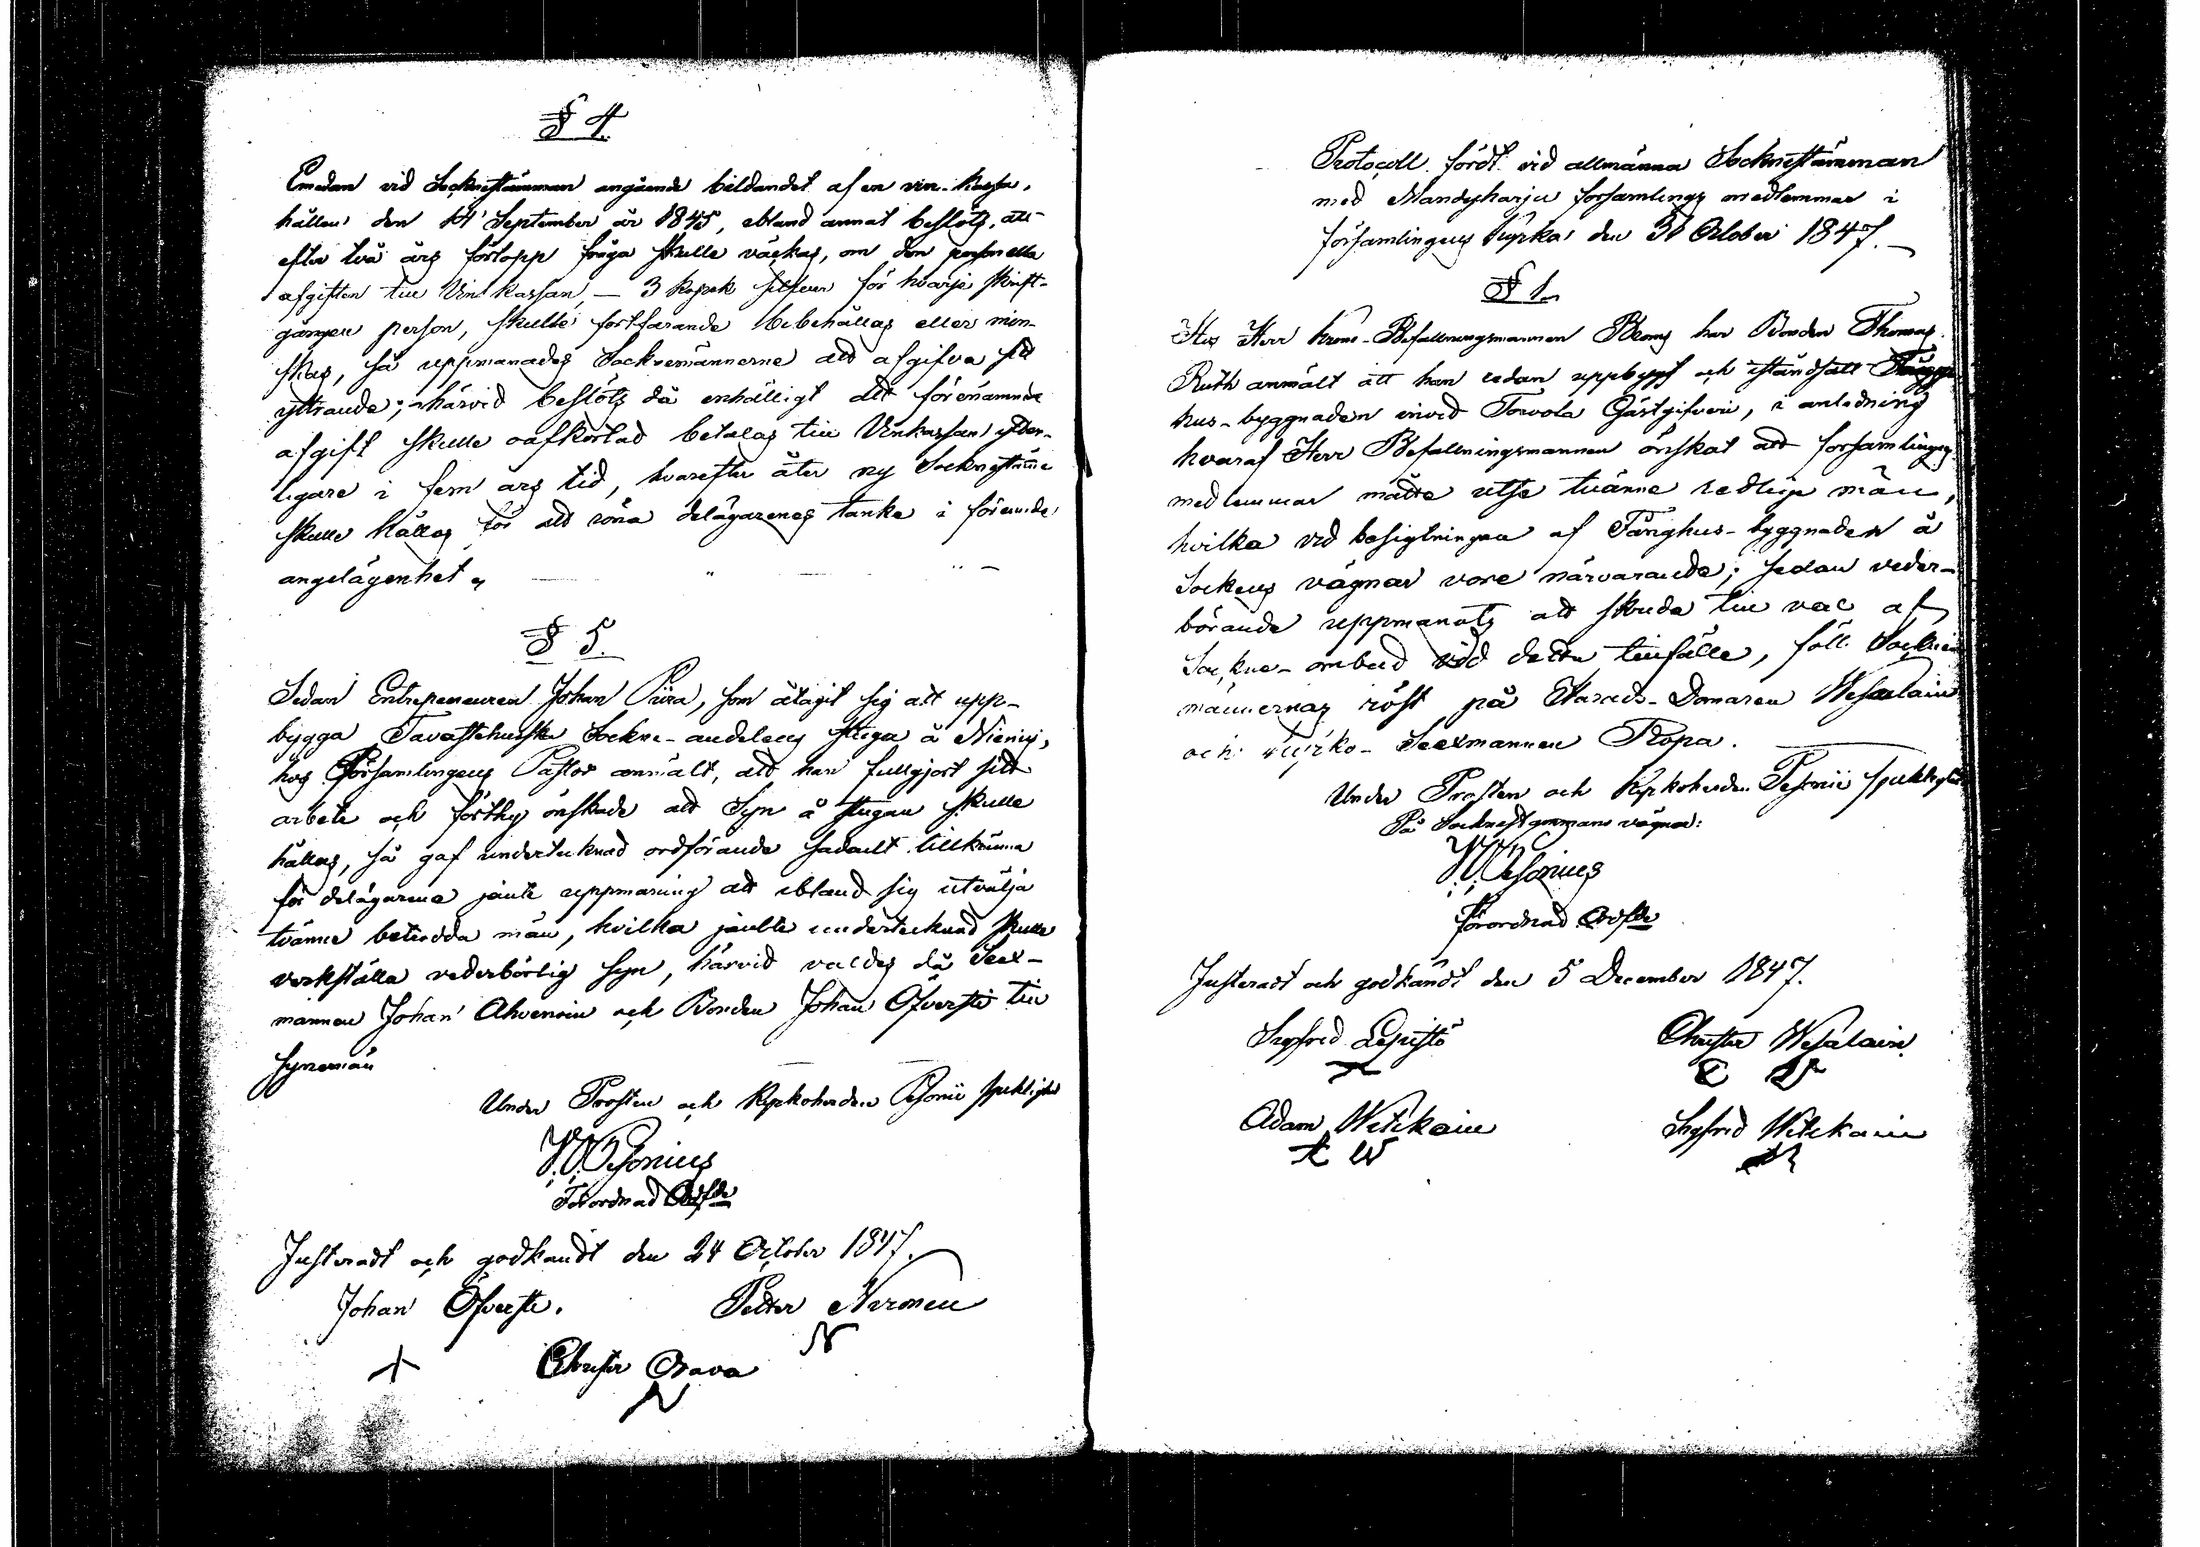 § 4.
Emedan vid Socknestämman angående bildandet af en vin-kassa,
hållen den 14 September år 1845, ibland annat beslöts, att
efter två års förlopp fråga skulle väckas, om den personella
afgiften till Vinkassan, — 3 kopek silfver för hvarje skrift-
gången person, skulle fortfarande bibehållas eller min-
skas, så uppmanades Socknemännerne att afgifva sitt
yttrande; härvid beslöts då enhälligt att förenämnde
afgift skulle oafkortad betalas till Vinkassan ytter-
ligare i fem års tid, hvarefter åter ny Socknestämma
skulle hållas för att röna delägarenes tanke i förevarande
angelägenhet
§ 5.
Sedan Entrepreneuren Johan Piira, som åtagit sig att upp-
bygga Tavastehusska Sockne-andelens stuga å Niemis,
hos Församlingens Pastor anmält, att han fullgjort sitt
arbete och förthy önskade att Syn å stugan skulle
hållas, så gaf undertecknad ordförande sådant tillkänna
för delägarena jemte uppmaning att ibland sig utvälja
tvänne betrodda män, hvilka jemte undertecknad skulle
verkställa vederbörlig syn, härvid valdes då Sex-
mannen Johan Ahvenain och Bonden Johan Öfversti till
synemän
Under Prosten och Kyrkoherden Pesonii sjuklighet
Pesonius
Förordnad Ordfde
Justeradt och godkändt den 24 October 1847.
Johan Öfversti. Petter Nironen
N
Christer Orava
N
Protocoll fördt vid allmänna Socknestämman
med Mandyharju församlings medlemmar i
församlingens Kyrka den 31 October 1847.
§ 1.
Hos Herr Krono-Befallningsmannen Brony har Bonden Thomas
Ruth anmält att han redan uppbyggt och iståndsatt Fång-
hus-byggnaden invid Toivola Gästgifveri, i anledning
hvaraf Herr Befallningsmannen önskat att församlingens
medlemmar måtte utse tvänne redlige män,
hvilka vid besigtningen af Fånghus-byggnaden å
Sockens vägnar vore närvarande; sedan veder-
börande uppmanats att skrida till val af
Sockne-ombud vid detta tillfälle, föll Sockne-
männernas röst på Härads-Domaren Wesalain
och Kyrko-Sexmannen Ropa.
Under Prosten och Kyrkoherden Pesonii sjuklighet
På Socknestämmans vägnar:
Pesonius
Förordnad Ordfde
Justeradt och godkändt den 5 December 1847.
Sigfrid Lepistö Christer Wesalain
C W
Adam Witikain Sigfrid Witikain
A W